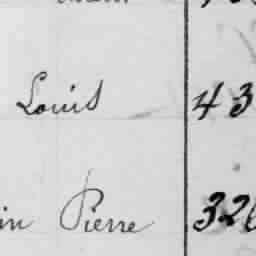 Louis 43
in Pierre 326